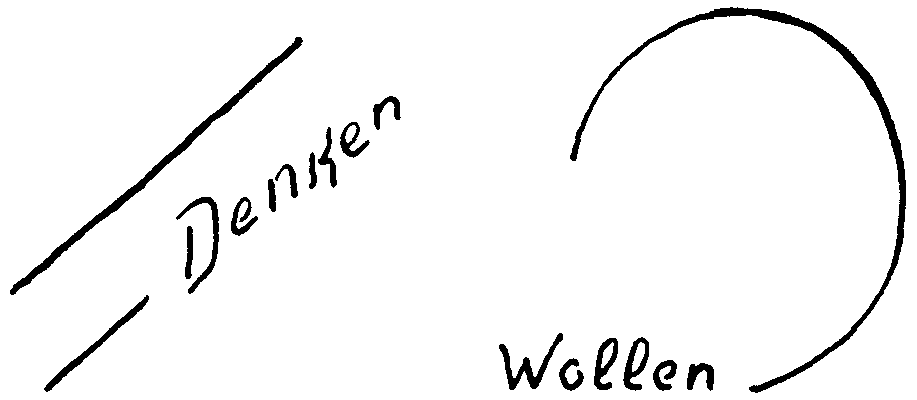 Denken
Wollen